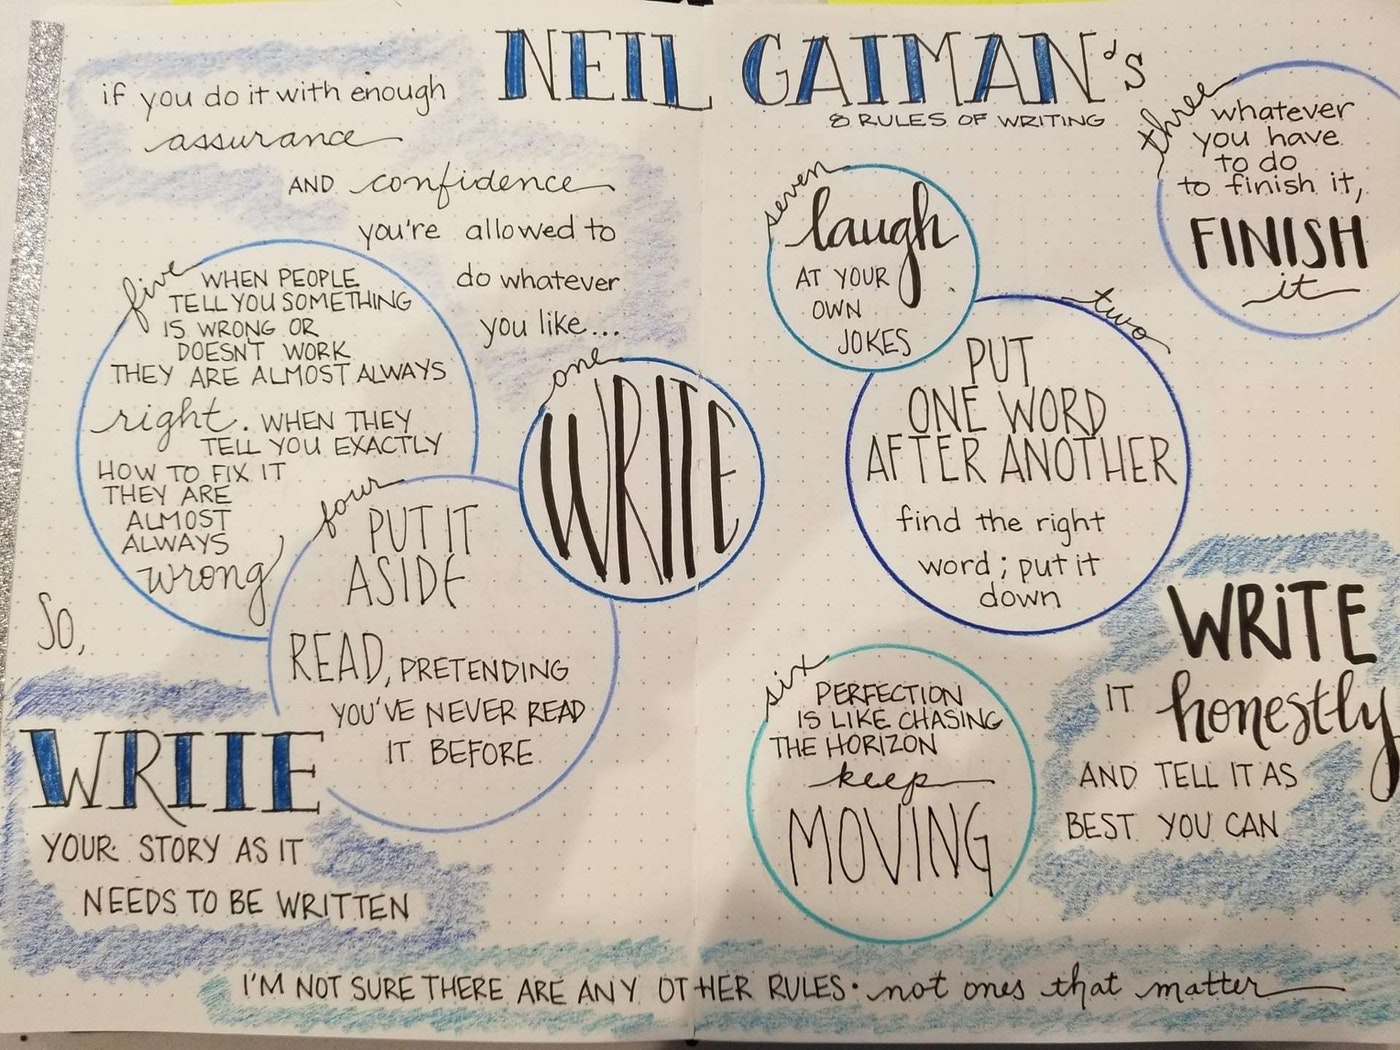 NEIL GAIMAN's
8 RULES OF WRITING
if you do it with enough
assurance
AND confidence
you're allowed to
do whatever
you like...
one
WRITE
two
PUT
ONE WORD
AFTER ANOTHER
find the right
word; put it
down
three
whatever
you have
to do
to finish it,
FINISH
it
four
PUT IT
ASIDE
READ, PRETENDING
YOU'VE NEVER READ
IT BEFORE
five
WHEN PEOPLE
TELL YOU SOMETHING
IS WRONG OR
DOESN'T WORK
THEY ARE ALMOST ALWAYS
right. WHEN THEY
TELL YOU EXACTLY
HOW TO FIX IT
THEY ARE
ALMOST
ALWAYS
wrong
six
PERFECTION
IS LIKE CHASING
THE HORIZON
keep
MOVING
seven
laugh
AT YOUR
OWN
JOKES
So,
WRITE
YOUR STORY AS IT
NEEDS TO BE WRITTEN
WRiTE
IT honestly
AND TELL IT AS
BEST YOU CAN
I'M NOT SURE THERE ARE ANY OTHER RULES. not ones that matter